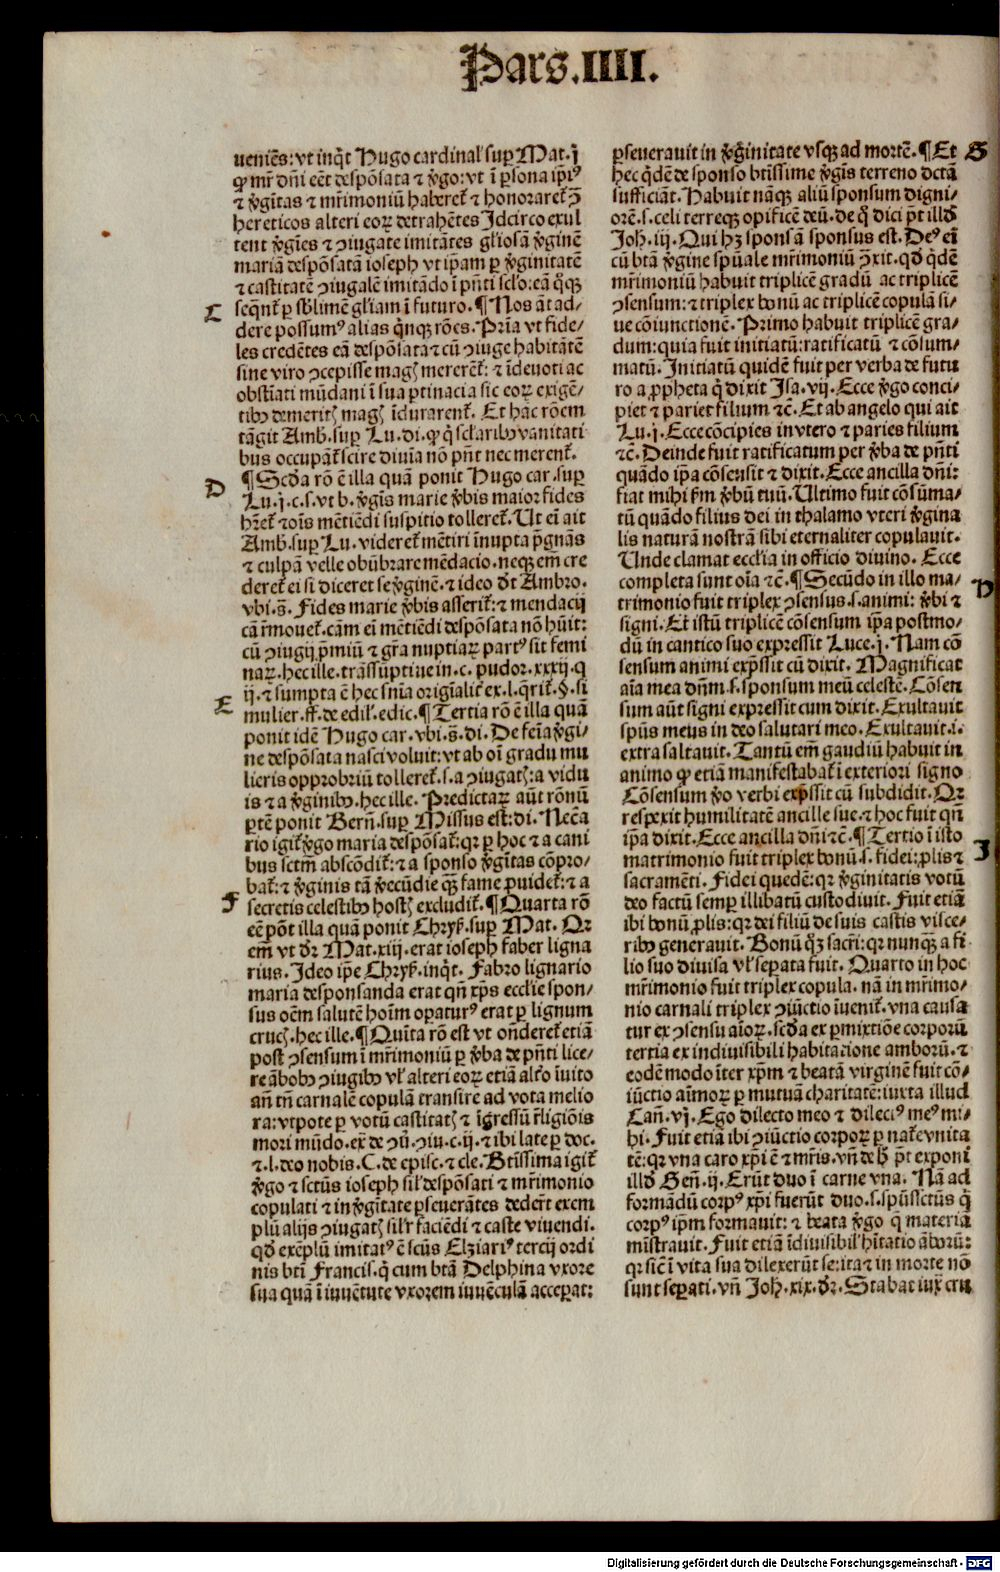 Pars.IIII.
ueniẽs: vt inq̃t Hugo cardinal' sup̱ Mat.j
ꝙ mr̃ dñi eẽt despõsata ⁊ v̾go: vt ĩ p̱sona ip̃iꝰ
⁊ v̾gĩtas ⁊ mr̃imoniũ haberet̃ ⁊ honoraret̃ ꝯ̃
hereticos alteri eoꝝ detrahẽtes Idcirco exul
tent v̾gĩes ⁊ ꝯiugate imitãtes gl'iosã v̾ginẽ
mariã despõsatã ioseph vt ip̃am p̱ v̾ginitatẽ
⁊ castitatẽ ꝯiugalẽ imitãdo ĩ p̃nti sc'lo: eã q̊q̃ꝫ
C
seq̃nt̃ p̱ sb'limẽ gl'iam ĩ futuro. ¶ Nos ãt ad/
dere possumꝰ alias q̃nqꝫ rões. Pria vt fide/
les credẽtes eã despõsatã ⁊ cũ ꝯiuge habitãtẽ
sine viro ꝯcepisse magꝭ mererẽt̃: ⁊ ĩdeuoti ac
obstĩati mũdani ĩ sua p̱tinacia sic eoꝝ exigẽ/
tibꝰ demeritꝭ magꝭ ĩdurarent̃. Et hãc rõem
tãgit Amb̃. sup̱ Lu. di. ꝙ q̃ sc'laribꝰ vanitati
bus occupãt̃ scire diuĩa nõ pñt nec merent̃.
D
¶ Scd̃a rõ ẽ illa quã ponit Hugo car. sup̱
Lu.j.c.s.vt b. v̾gĩs marie v̾bis maior fides
hr̃et̃ ⁊ oĩs mẽtiẽdi suspitio tolleret̃. Ut eĩ ait
Amb̃. sup̱ Lu. videret̃ mẽtiri ĩnupta p̃gnãs
⁊ culpã velle obũbrare mẽdacio. neqꝫ em̃ cre
deret̃ ei si diceret se v̾ginẽ. ⁊ ideo d̃t Ambro.
vbi.s̃. Fides marie v̾bis asserit̃: ⁊ mendacij
cã r̃mouet̃. cãm eĩ mẽtiẽdi despõsata nõ hũit:
cũ ꝯiugij p̃miũ ⁊ gr̃a nuptiaꝝ partꝰ sit femi
naꝝ. hec ille. trãssũptiue in.c. pudor.xxxij.q
ij. ⁊ sumpta ẽ hec sñia origĩalit̃ ex.l.q̃rit̃.§. si
E
mulier.ff. de edil'. edic. ¶ Tertia rõ ẽ illa quã
ponit idẽ Hugo car. vbi.s̃. di. De feĩa v̾gi/
ne despõsata nasci voluit: vt ab oĩ gradu mu
lieris opprobriũ tolleret̃. s. a ꝯiugatꝭ: a vidu
is ⁊ a v̾ginibꝰ. hec ille. Predictaꝝ aũt rõnũ
p̱tẽ ponit Bern̄. sup̱ Missus est: di. Necc̃a
rio igit̃ v̾go maria despõsat̃: qꝛ p̱ hoc ⁊ a cani
bus sctm̃ abscõdit̃: ⁊ a sponso v̾gĩtas cõpro/
bat̃: ⁊ v̾ginis tã v̾ecũdie q̃ꝫ fame ꝓuidet̃: ⁊ a
F
secretis celestibꝰ hostꝭ excludit̃. ¶ Quarta rõ
eẽ põt illa quã ponit Chrys̃. sup̱ Mat. Qꝛ
em̃ vt d̃r Mat.xiij. erat ioseph faber ligna
rius. Ideo ip̃e Chrys̃. inq̃t. Fabro lignario
maria desponsanda erat qñ xp̃s ecclie spon/
sus oẽm salutẽ hoĩm op̱aturꝰ erat p̱ lignum
crucꝭ. hec ille. ¶ Quĩta rõ est vt oñderet̃ etiã
post ꝯsensum ĩ mr̃imoniũ p̱ v̾ba de p̃nti lice/
re ãbobꝰ ꝯiugibꝰ vl' alteri eoꝝ etiã alt̃o ĩuito
añ tñ carnalẽ copulã transire ad vota melio
ra: vtpote p̱ votũ castitatꝭ ⁊ ĩgressũ r̃ligiõis
mori mũdo. ex̃ de ꝯũ. ꝯiu.c.ij. ⁊ ibi late p̱ doc.
⁊.l. deo nobis. C. de ep̃isc. ⁊ cle. Btĩssima igit̃
v̾go ⁊ sctũs ioseph sil' despõsati ⁊ mr̃imonio
copulati ⁊ in v̾gĩtate p̱seuerãtes dedert̃ exem
plũ alijs ꝯiugatꝭ sil'r faciẽdi ⁊ caste viuendi.
qd̃ exẽplũ imitatꝰ ẽ scũs Elziariꝰ tercij ordi
nis btĩ Francis. q̃ cum btã Delphina vxore
sua quã ĩ iuuẽtute vxorem iuuẽculã accep̱at:
p̱seuerauit in v̾gĩnitate vsqꝫ ad mortẽ. ¶ Et G
hec q̃dẽ de sponso btĩssime v̾gĩs terreno dcã
sufficiãt. Habuit nãqꝫ aliũ sponsum digni/
orẽ. s. celi terreqꝫ opificẽ deũ. de q̊ dici p̃t illd̃
Joh̃.iij. Qui hꝫ sponsã sponsus est. Deꝰ eĩ
cũ btã v̾gine spũale mr̃imoniũ ꝯ̃xit. qd̃ q̃dẽ
mr̃imoniũ habuit triplicẽ gradũ ac triplicẽ
ꝯsensum: ⁊ triplex bonũ ac triplicẽ copulã si/
ue cõiunctionẽ. Primo habuit triplicẽ gra/
dum: quia fuit initiatũ: ratificatũ ⁊ cõsum/
matũ. Initiatũ quidẽ fuit per verba de futu
ro a ꝓpheta q̃ dixit Isa.vij. Ecce v̾go conci/
piet ⁊ pariet filium ⁊c̃. Et ab angelo qui ait
Lu.j. Ecce cõcipies in vtero ⁊ paries filium
⁊c̃. Deinde fuit ratificatum per v̾ba de p̃nti
quãdo ip̃a cõsensit ⁊ dixit. Ecce ancilla dñi:
fiat mihi s̃m v̾bũ tuũ. Ultimo fuit cõsũma/
tũ quãdo filius dei in thalamo vteri v̾gina
lis naturã nostrã sibi eternaliter copulauit.
Unde clamat ecclia in officio diuino. Ecce
completa sunt oĩa ⁊c̃. ¶ Secũdo in illo ma/
H
trimonio fuit triplex ꝯsensus. s. animi: v̾bi ⁊
signi. Et istũ triplicẽ cõsensum ip̃a postmo/
dũ in cantico suo expressit Luce.j. Nam cõ
sensum animi exp̃ssit cũ dixit. Magnificat
aĩa mea dñm. s. sponsum meũ celestẽ. Cõsen
sum aũt signi expressit cum dixit. Exultauit
spũs meus in deo salutari meo. Exultauit.i.
extra saltauit. Tantũ em̃ gaudiũ habuit in
animo ꝙ etiã manifestabat̃ ĩ exteriori signo
Cõsensum v̾o verbi exp̃ssit cũ subdidit. Qꝛ
respexit humilitatẽ ancille sue. ⁊ hoc fuit qñ
ip̃a dixit. Ecce ancilla dñi ⁊c̃. ¶ Tertio ĩ isto
I
matrimonio fuit triplex bonũ. s. fidei: ꝓlis ⁊
sacramẽti. Fidei quedẽ: qꝛ v̾ginitatis votũ
deo factũ semp̱ illibatũ custodiuit. Fuit etiã
ibi bonũ ꝓlis: qꝛ dei filiũ de suis castis visce/
ribꝰ generauit. Bonũ q̊ꝫ sacr̃i: qꝛ nunqꝫ̃ a fi
lio suo diuisa vl' sep̱ata fuit. Quarto in hoc
mr̃imonio fuit triplex copula. nã in mr̃imo/
nio carnali triplex ꝯiũctio ĩuenit̃. vna causa
tur ex ꝯsensu aĩoꝝ. scd̃a ex p̱mixtiõe corporũ
tertia ex indiuisibili habitatione amborũ. ⁊
eodẽ modo ĩter xp̃m ⁊ beatã virginẽ fuit cõ/
iũctio aĩmoꝝ p̱ mutuã charitatẽ: iuxta illud
Cañ.vj. Ego dilecto meo ⁊ dilectꝰ meꝰ mi/
hi. Fuit etiã ibi ꝯiũctio corpoꝝ p̱ nat̃e vnita
tẽ: qꝛ vna caro xp̃i ẽ ⁊ mr̃is. vñ de h̃ p̃t exponi
illd̃ Geñ.ij. Erũt duo ĩ carne vna. Nã ad
formãdũ corpꝰ xp̃i fuerũt duo. s. spũssctũs q̃
corpꝰ ip̃m formauit: ⁊ beata v̾go q̃ materiã
mĩstrauit. Fuit etiã ĩdiuisibil' hĩtatio ãborũ:
qꝛ sicẽ ĩ vita sua dilexerũt se: ita ⁊ in morte nõ
sunt sep̱ati. vñ Joh̃.xix. d̃r. Stabat iux̃ cru
Digitalisierung gefördert durch die Deutsche Forschungsgemeinschaft - DFG